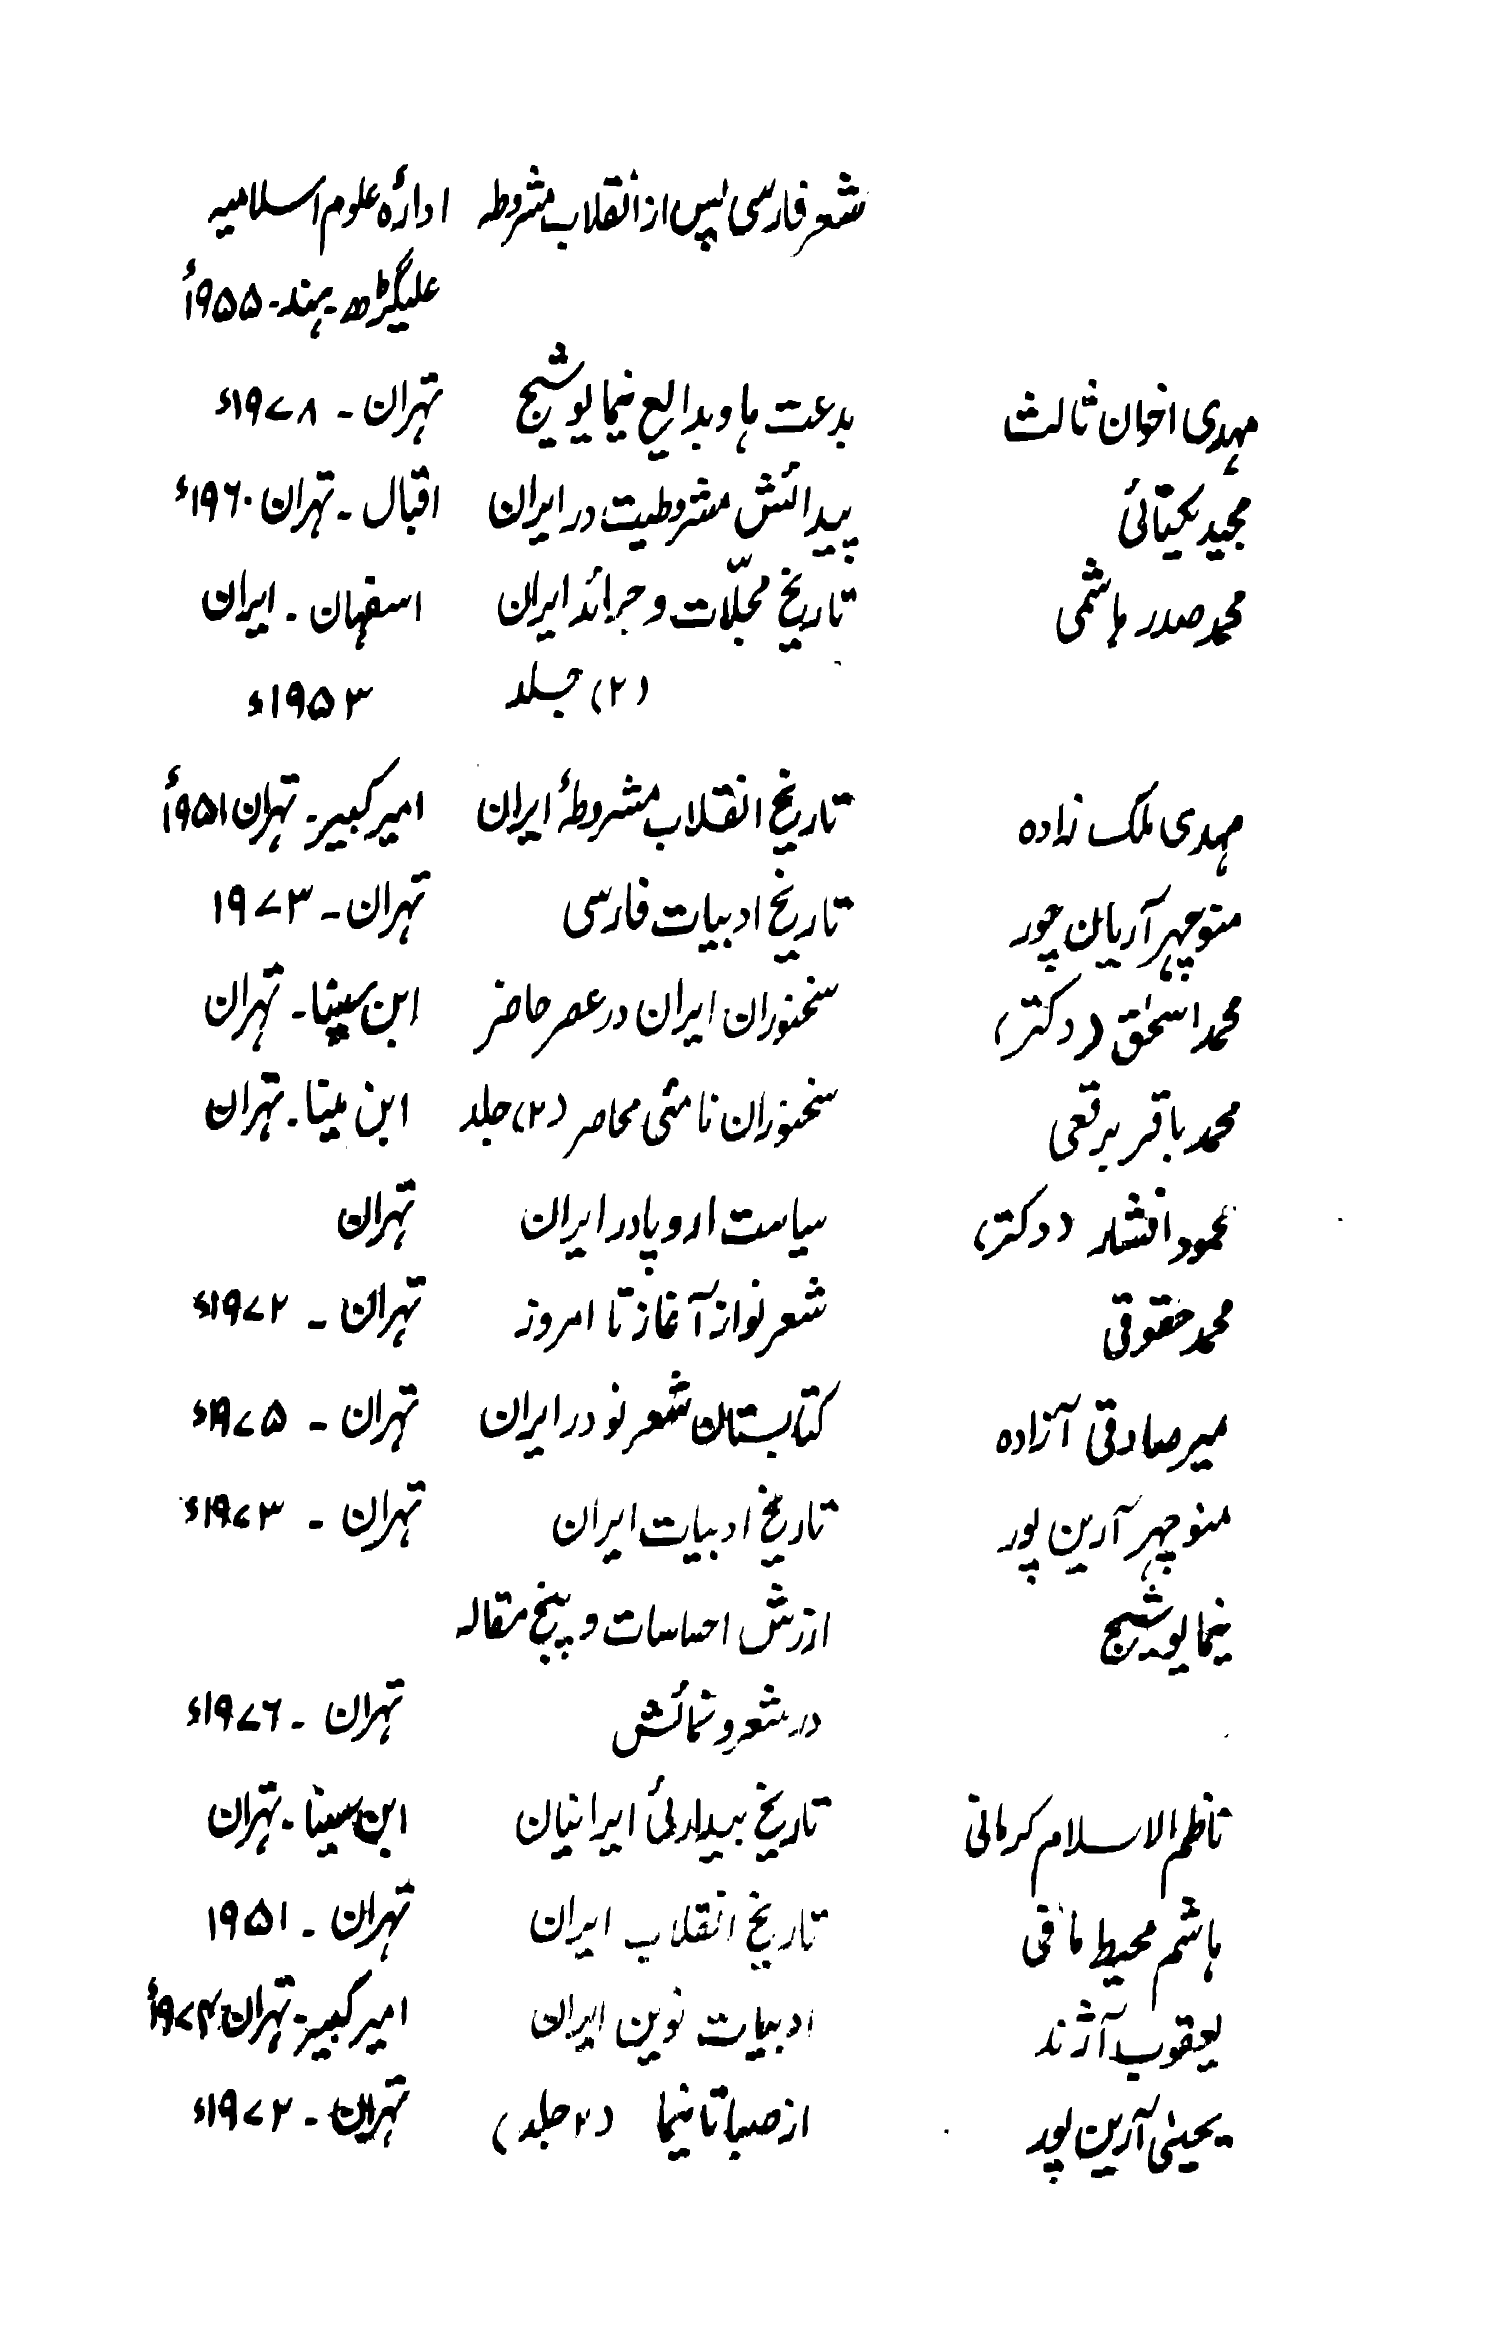 شعر فارسی پس از انقلاب مشروطہ ادارۂ علوم اسلامیہ
علیگڑھ ہند۔ ۱۹۵۵ء
مہدی اخوان ثالث بدعت ہا و بدایع نیما یوشیج تہران ۔ ۱۹۷۸ء
مجید یکتائی پیدائش مشروطیت در ایران اقبال ۔ تہران ۱۹۶۰ء
محمد صدر ہاشمی تاریخ مجلّات و جرائد ایران اسفہان ۔ ایران
(۲) جلد ۱۹۵۳ء
مہدی ملک زادہ تاریخ انقلاب مشروطۂ ایران امیر کبیر ۔ تہران ۱۹۵۱ء
منوچہر آریان پور تاریخ ادبیات فارسی تہران ۔ ۱۹۷۳
محمد اسحٰق (دکتر) سخنوران ایران در عصر حاضر ابن سینا ۔ تہران
محمد باقر برقعی سخنوران نامئی معاصر (۲) جلد ابن سینا ۔ تہران
محمود افشار (دکتر) سیاست اروپا در ایران تہران
محمد حقوقی شعر نو از آغاز تا امروز تہران ۔ ۱۹۷۲ء
میر صادقی آزادہ کتابستان شعر نو در ایران تہران ۔ ۱۹۷۵ء
منوچہر آرین پور تاریخ ادبیات ایران تہران ۔ ۱۹۷۳ء
نیما یوشیج ارزش احساسات و پنج مقالہ
در شعر و نمائش تہران ۔ ۱۹۷۶ء
ناظم الاسلام کرمانی تاریخ بیداریٔ ایرانیان ابن سینا ۔ تہران
ہاشم محیط مافی تاریخ انقلاب ایران تہران ۔ ۱۹۵۱
یعقوب آژند ادبیات نوین ایران امیر کبیر ۔ تہران ۱۹۷۴ء
یحییٰ آرین پور از صبا تا نیما (۲ جلد) تہران ۔ ۱۹۷۲ء